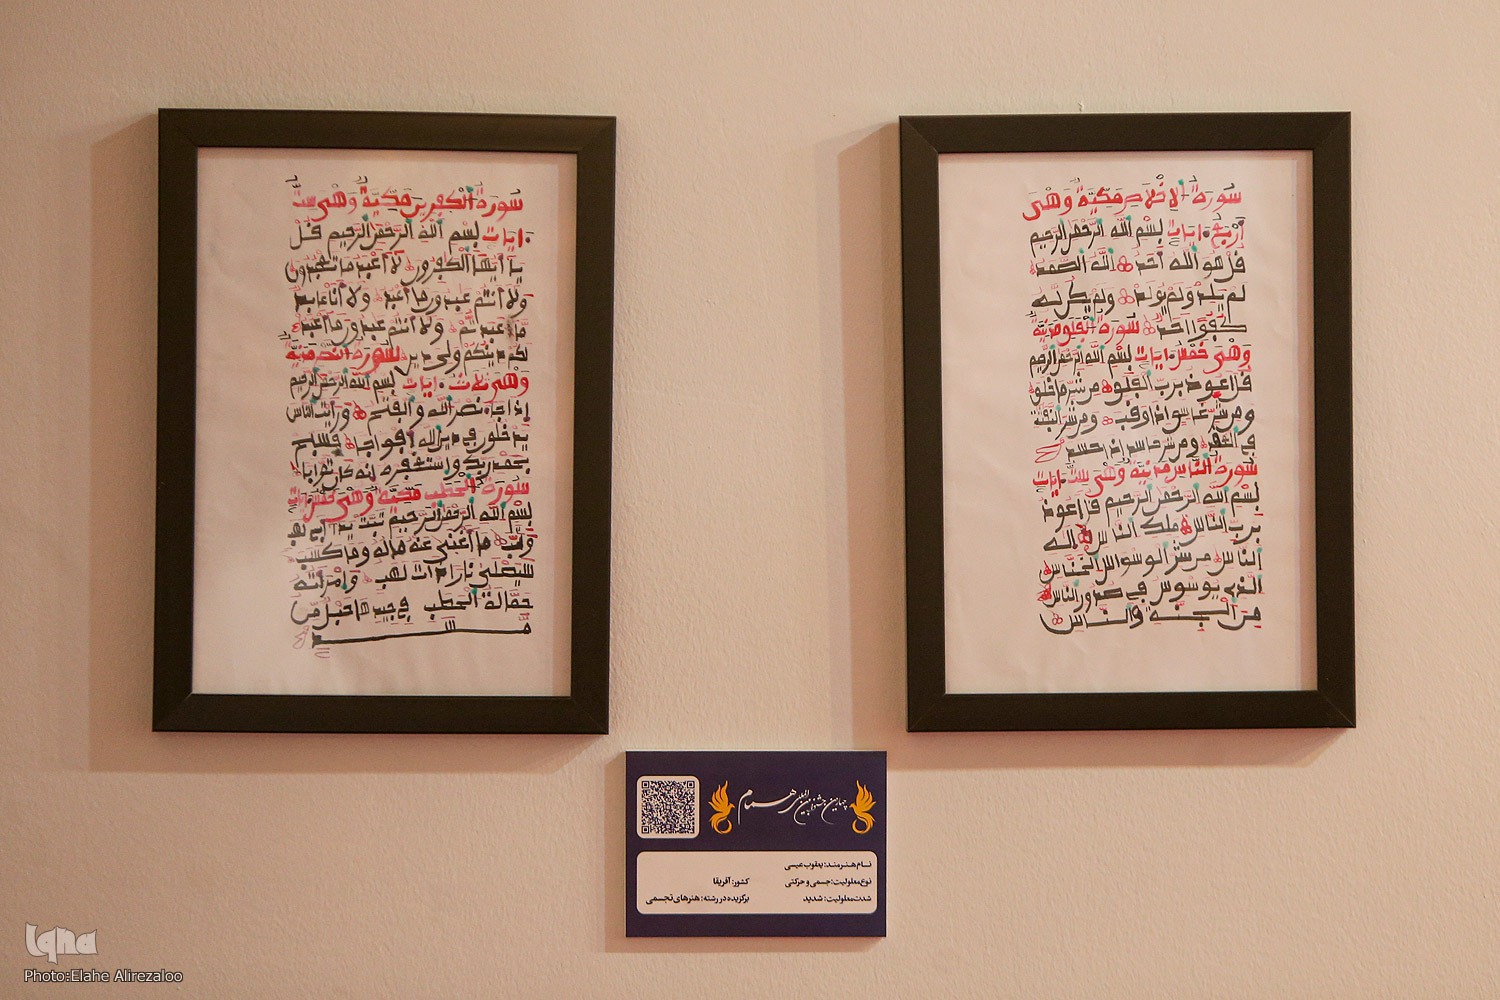 سُورَةُ الْكٰفِرِينَ مَكِّيَّةٌ وَهْىَ سِتُّ
ءَايَات بِسْمِ اللهِ الرَّحْمٰنِ الرَّحِيمِ قُلْ
يَا أَيُّهَا الْكٰفِرُونَ لَا أَعْبُدُ مَا تَعْبُدُونَ
وَلَا أَنتُمْ عٰبِدُونَ مَا أَعْبُدُ وَلَا أَنَا عَابِدٌ
مَّا عَبَدتُّمْ وَلَا أَنتُمْ عٰبِدُونَ مَا أَعْبُدُ
لَكُمْ دِينُكُمْ وَلِىَ دِينِ سُورَةُ
وَهْىَ ثَلَاث ءَايَات بِسْمِ اللهِ الرَّحْمٰنِ الرَّحِيمِ
إِذَا جَاءَ نَصْرُ اللهِ وَالْفَتْحُ وَرَأَيْتَ النَّاسَ
يَدْخُلُونَ فِي دِينِ اللهِ أَفْوَاجًا فَسَبِّحْ
بِحَمْدِ رَبِّكَ وَاسْتَغْفِرْهُ إِنَّهُ كَانَ تَوَّابًا
سُورَةُ الْحَطَبِ مَكِّيَّةٌ وَهْىَ خَمْسُ ءَايَات
بِسْمِ اللهِ الرَّحْمٰنِ الرَّحِيمِ تَبَّتْ يَدَا أَبِي لَهَبٍ
وَتَبَّ مَا أَغْنٰى عَنْهُ مَالُهُ وَمَا كَسَبَ
سَيَصْلٰى نَارًا ذَاتَ لَهَبٍ وَامْرَأَتُهُ
حَمَّالَةُ الْحَطَبِ فِي جِيدِهَا حَبْلٌ مِّن
مَّسَدٍ
سُورَةُ الْإِخْلَاصِ مَكِّيَّةٌ وَهْىَ
أَرْبَعُ ءَايَات بِسْمِ اللهِ الرَّحْمٰنِ الرَّحِيمِ
قُلْ هُوَ اللهُ أَحَدٌ اللهُ الصَّمَدُ
لَمْ يَلِدْ وَلَمْ يُولَدْ وَلَمْ يَكُن لَّهُ
كُفُؤًا أَحَدٌ سُورَةُ الْفَلَقِ مَدَنِيَّةٌ
وَهْىَ خَمْسُ ءَايَات بِسْمِ اللهِ الرَّحْمٰنِ الرَّحِيمِ
قُلْ أَعُوذُ بِرَبِّ الْفَلَقِ مِن شَرِّ مَا خَلَقَ
وَمِن شَرِّ غَاسِقٍ إِذَا وَقَبَ وَمِن شَرِّ النَّفّٰثٰتِ
فِي الْعُقَدِ وَمِن شَرِّ حَاسِدٍ إِذَا حَسَدَ
سُورَةُ النَّاسِ مَدَنِيَّةٌ وَهْىَ سِتُّ ءَايَات
بِسْمِ اللهِ الرَّحْمٰنِ الرَّحِيمِ قُلْ أَعُوذُ
بِرَبِّ النَّاسِ مَلِكِ النَّاسِ إِلٰهِ
النَّاسِ مِن شَرِّ الْوَسْوَاسِ الْخَنَّاسِ
الَّذِي يُوَسْوِسُ فِي صُدُورِ النَّاسِ
مِنَ الْجِنَّةِ وَالنَّاسِ
چهارمین جشنواره بین‌المللی همام
نام هنرمند: یعقوب عیسی
نوع معلولیت: جسمی و حرکتی کشور: آفریقا
شدت معلولیت: شدید برگزیده در رشته: هنرهای تجسمی
Iqna
Photo:Elahe Alirezaloo